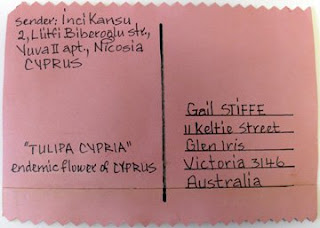 sender: İnci Kansu
2, Lütfi Biberoğlu str.,
Yuva II apt., Nicosia
CYPRUS
"TULIPA CYPRIA"
endemic flower of CYPRUS
Gail STIFFE
11 Keltie Street
Glen Iris
Victoria 3146
Australia